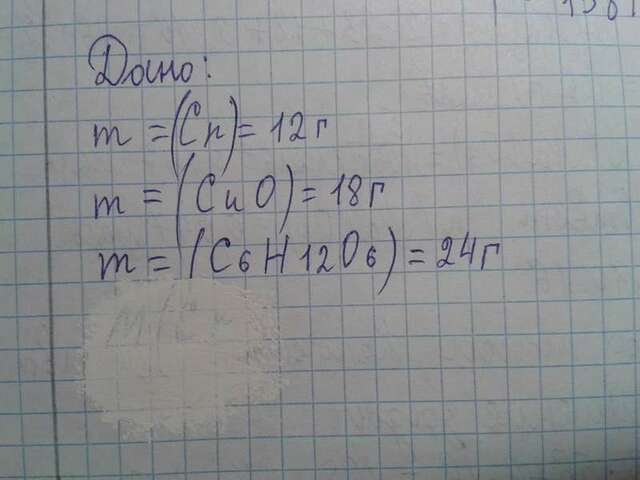 Дано:
m =(Cn)= 12 г
m =(CuO)= 18 г
m =(C6H12O6)= 24 г